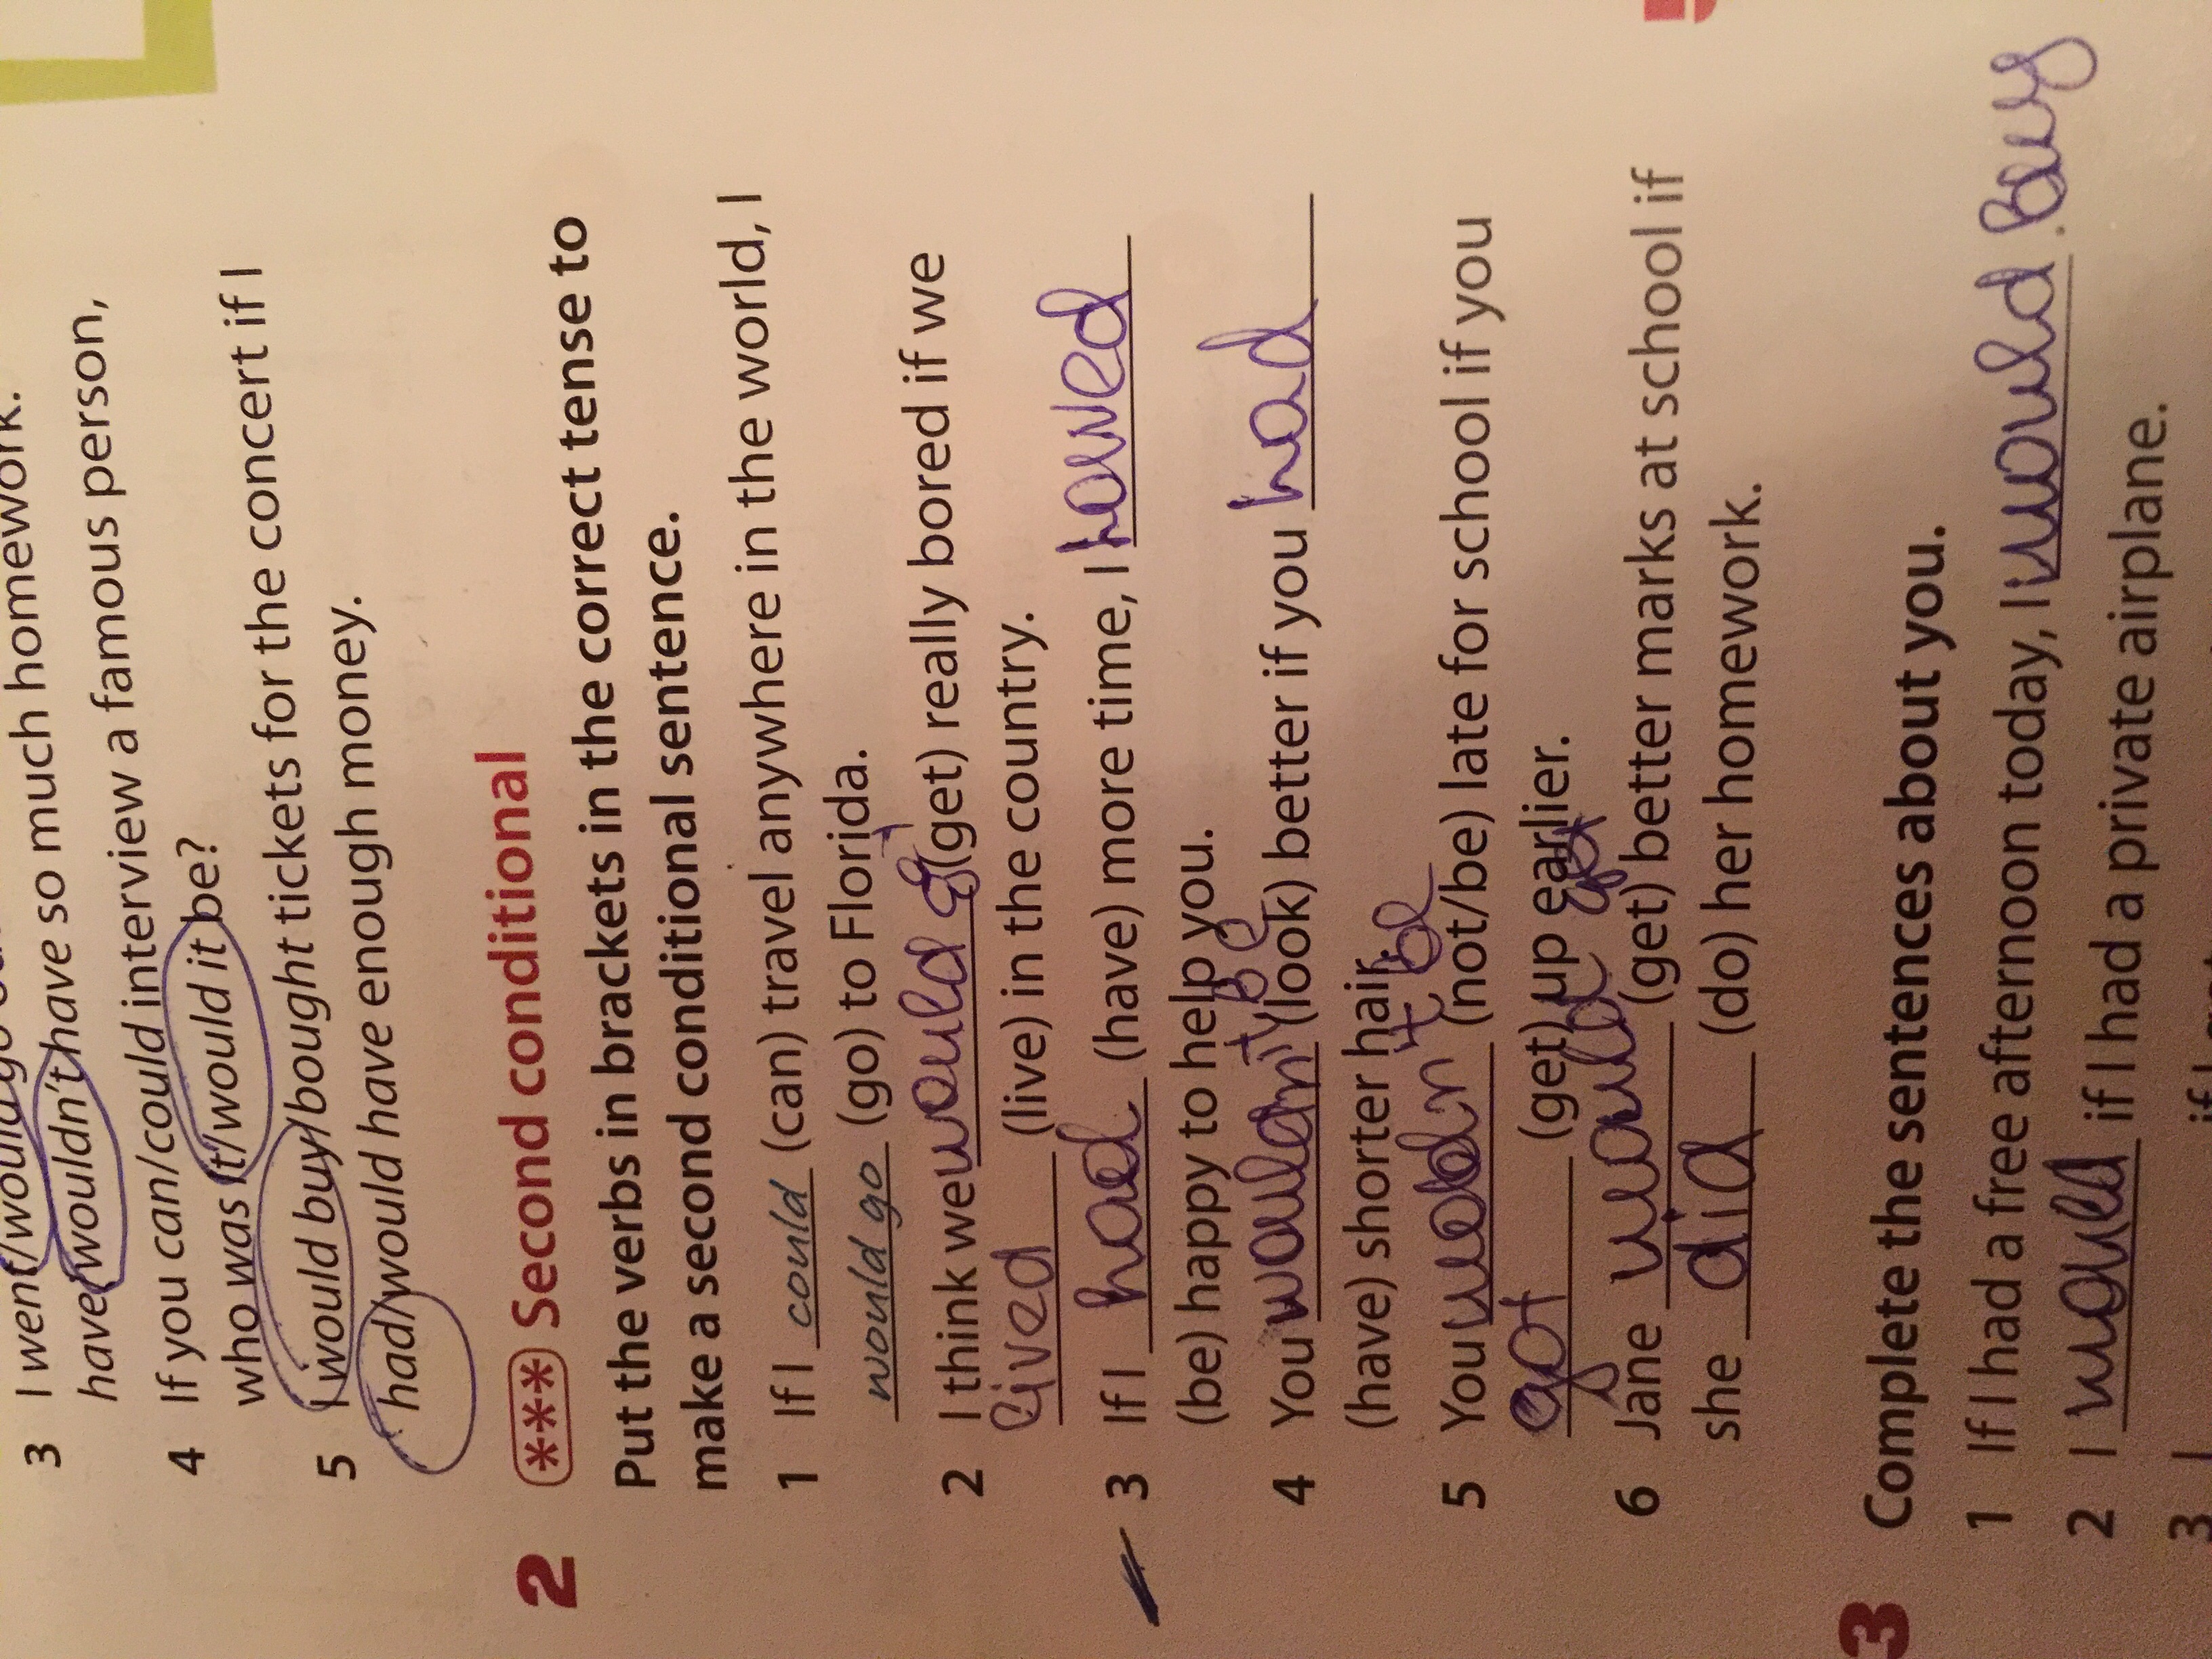 3 I went/would go
have/wouldn't have so much homework.
4 If you can/could interview a famous person,
who was it/would it be?
5 I would buy/bought tickets for the concert if I
had/would have enough money.
2 *** Second conditional
Put the verbs in brackets in the correct tense to
make a second conditional sentence.
1 If I could (can) travel anywhere in the world, I
would go (go) to Florida.
2 I think we would get (get) really bored if we
lived (live) in the country.
3 If I had (have) more time, I
(be) happy to help you.
4 You wouldn't be (look) better if you had
(have) shorter hair.
5 You wouldn't be (not/be) late for school if you
got (get) up earlier.
6 Jane would get (get) better marks at school if
she did (do) her homework.
3 Complete the sentences about you.
1 If I had a free afternoon today, I would buy.
2 I would if I had a private airplane.
3 I if I